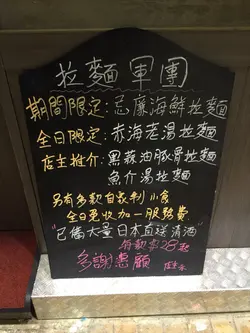 拉麵軍團
期間限定：忌廉海鮮拉麵
全日限定：赤海老湯拉麵
店主推介：黑蒜油豚骨拉麵
魚介湯拉麵
另有多款自家制小食
全日免收加一服務費
"已備大量日本直送清酒"
28起
多謝惠顧